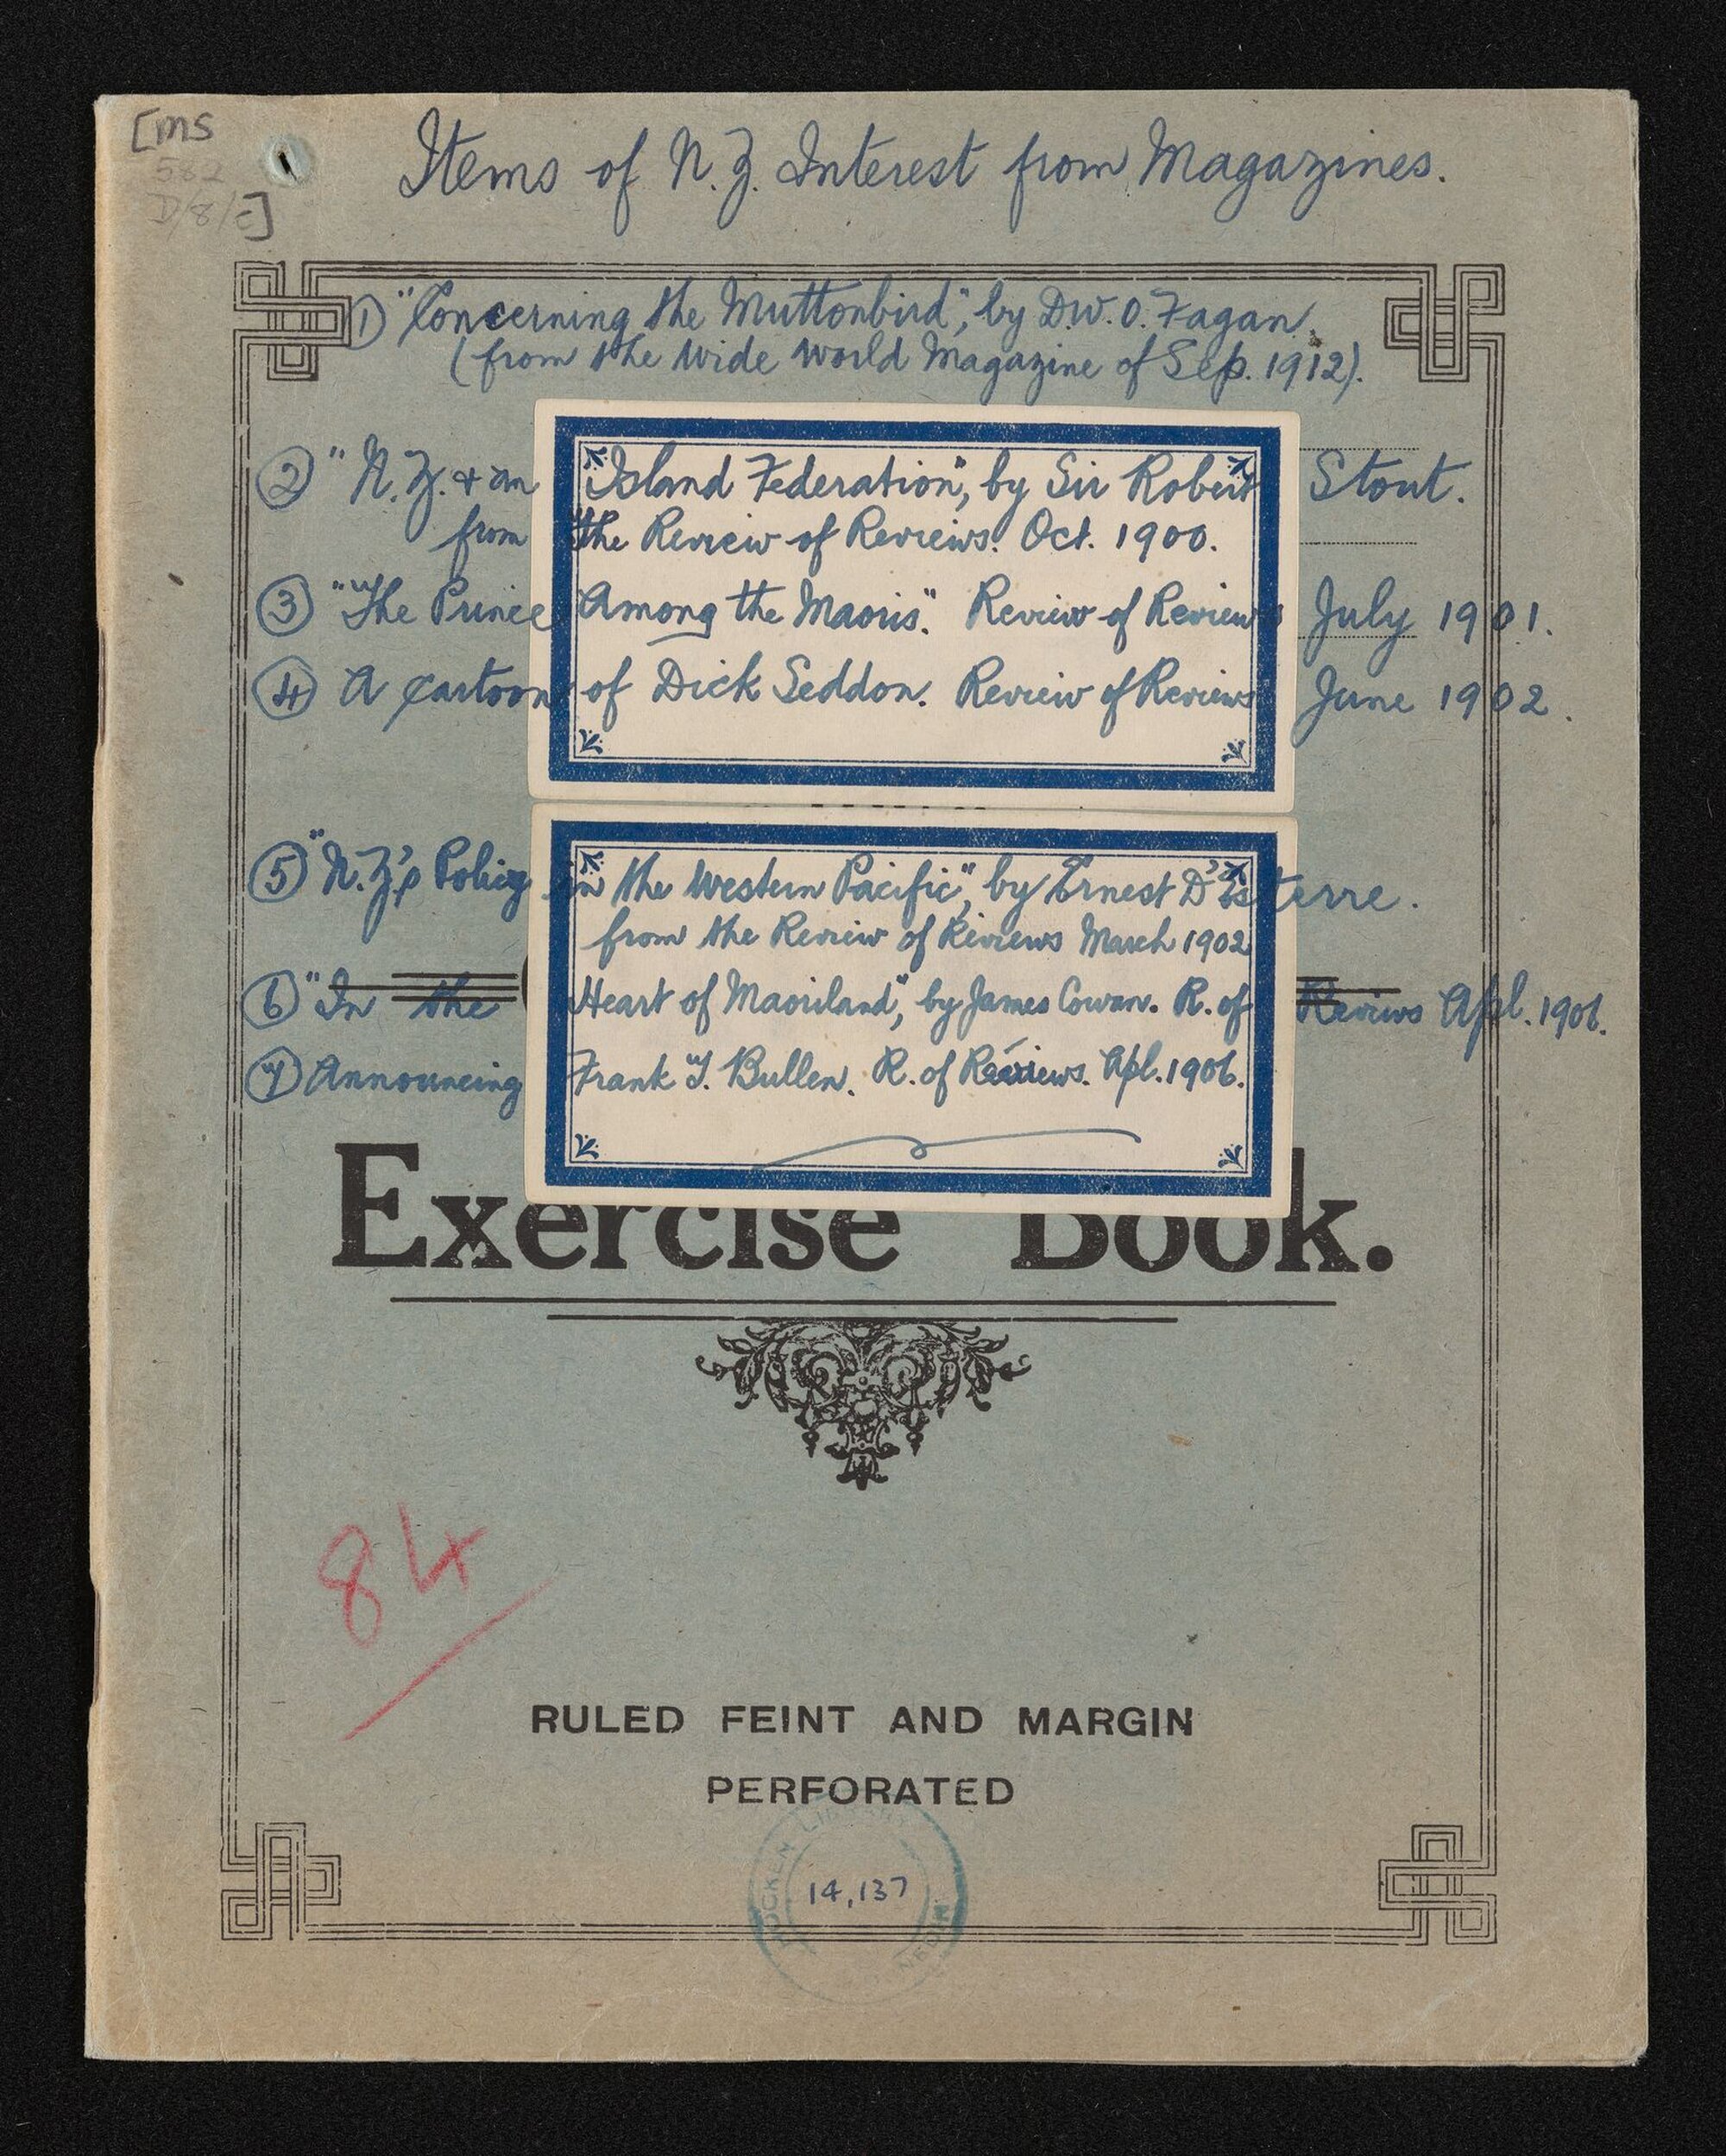 [MS
582
D/8/E]
Items of N.Z. Interest from Magazines.
① "Concerning the Muttonbird", by D.W.O. Fagan.
(from the Wide World Magazine of Sep. 1912).
② "N.Z. & an Island Federation", by Sir Robert Stout.
from the Review of Reviews. Oct. 1900.
③ "The Prince Among the Maoris". Review of Reviews July 1901.
④ A cartoon of Dick Seddon. Review of Reviews June 1902.
⑤ "N.Z's Policy in the Western Pacific", by Ernest D'Esterre.
from the Review of Reviews March 1902
⑥ "In the Heart of Maoriland", by James Cowan. R. of Reviews Apl. 1906.
⑦ Announcing Frank T. Bullen. R. of Reviews. Apl. 1906.
Exercise Book.
84
RULED FEINT AND MARGIN
PERFORATED
HOCKEN LIBRARY
14,137